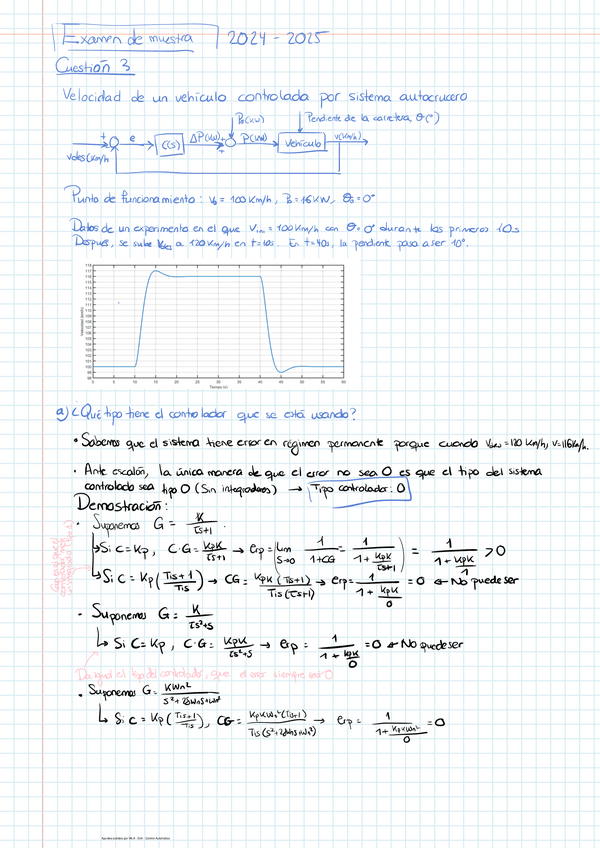 Examen de muestra 2024 - 2025
Cuestión 3
Velocidad de un vehículo controlada por sistema autocrucero
P₀(kW) Pendiente de la carretera, θ(°)
+ e C(s) ΔP(kW) + + P(kW) Vehículo v(km/h)
Vdes(km/h
Punto de funcionamiento: V₀ = 100 km/h, P₀ = 16 kW, θ₀ = 0°
Datos de un experimento en el que Vini = 100 km/h con θ = 0° durante los primeros 10s
Después, se sube Vdes a 120 km/h en t=10s. En t=40s, la pendiente pasa a ser 10°.
Velocidad (km/h)
118
117
116
115
114
113
112
111
110
109
108
107
106
105
104
103
102
101
100
99
98
0 5 10 15 20 25 30 35 40 45 50 55 60
Tiempo (s)
a) ¿Qué tipo tiene el controlador que se está usando?
• Sabemos que el sistema tiene error en régimen permanente porque cuando Vdes = 120 km/h, V = 116 km/h.
• Ante escalón, la única manera de que el error no sea 0 es que el tipo del sistema
controlado sea tipo 0 (Sin integradores) → Tipo controlador: 0
Demostración:
• Suponemos G = K/(τs+1).
↳ Si C = Kp, C·G = KpK/(τs+1) → erp = lim s→0 1/(1+CG) = 1/(1 + KpK/(τs+1)) = 1/(1 + KpK/1) > 0
↳ Si C = Kp((Tis+1)/(Tis)) → CG = KpK(Tis+1)/(Tis(τs+1)) → erp = 1/(1 + KpK/0) = 0 ← No puede ser
• Suponemos G = K/(τs²+s)
↳ Si C = Kp, C·G = KpK/(τs²+s) → erp = 1/(1 + KpK/0) = 0 ← No puede ser
Da igual el tipo del controlador, que el error siempre será 0
• Suponemos G = KWn²/(s²+2δWns+Wn²)
↳ Si C = Kp((Tis+1)/(Tis)), CG = KpKWn²(Tis+1)/(Tis(s²+2δWns+Wn²)) → erp = 1/(1 + KpKWn²/0) = 0